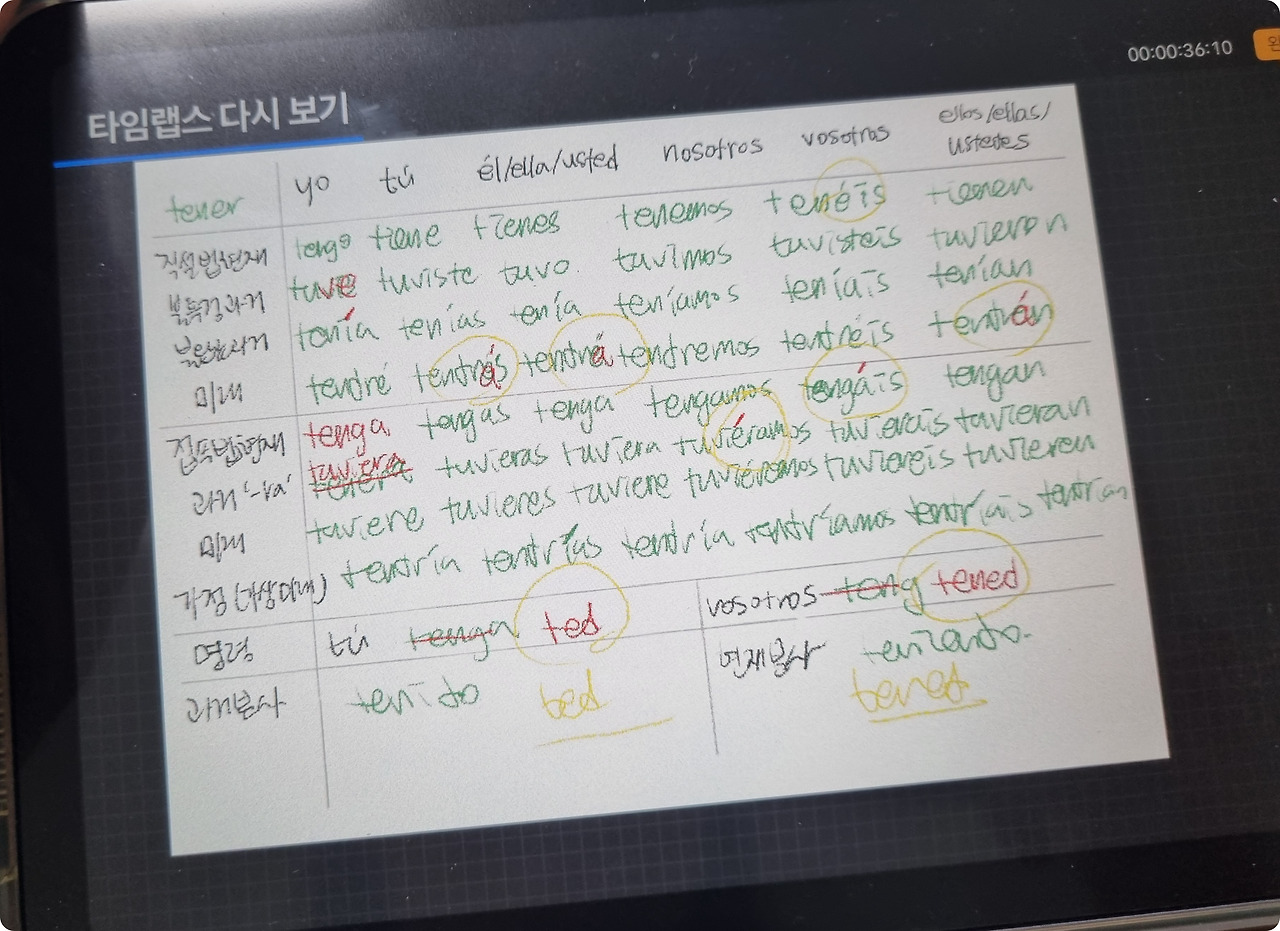 00:00:36:10
타임랩스 다시 보기
tener yo tú él/ella/usted nosotros vosotros ellos/ellas/ustedes
직설법현재 tengo tiene tienes tenemos tenéis tienen
부정과거 tuve tuviste tuvo. tuvimos tuvisteis tuvieron
불완료과거 tenía tenías tenía teníamos teníais tenían
미래 tendré tendrás tendrá tendremos tendréis tendrán
접속법현재 tenga tengas tenga tengamos tengáis tengan
과거 '-ra' tuviera tuvieras tuviera tuviéramos tuvierais tuvieran
미래 tuviere tuvieres tuviere tuviéremos tuviereis tuvieren
가정(가상미래) tendría tendrías tendría tendríamos tendríais tendrían
명령 tú tenga ted vosotros teng tened
과거분사 tenido ted 현재분사 teniendo. tened